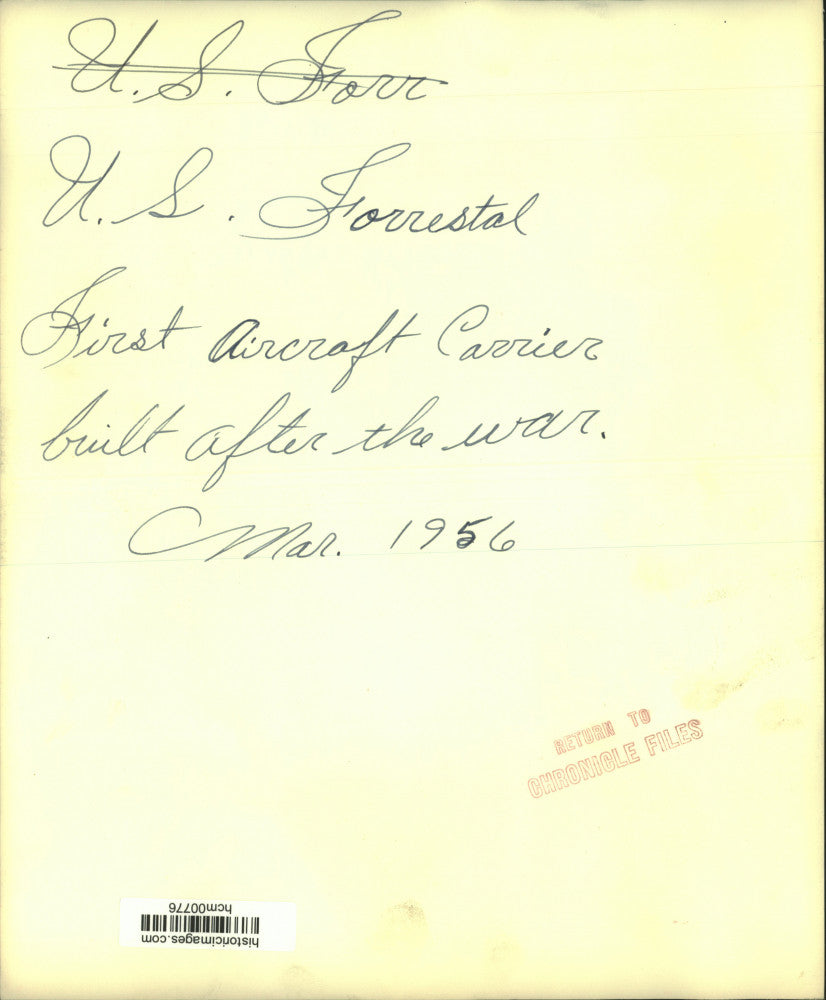 U.S. Forr
U.S. Forrestal
First Aircraft Carrier
built after the war.
Mar. 1956
RETURN TO
CHRONICLE FILES
historicimages.com
hcm00776